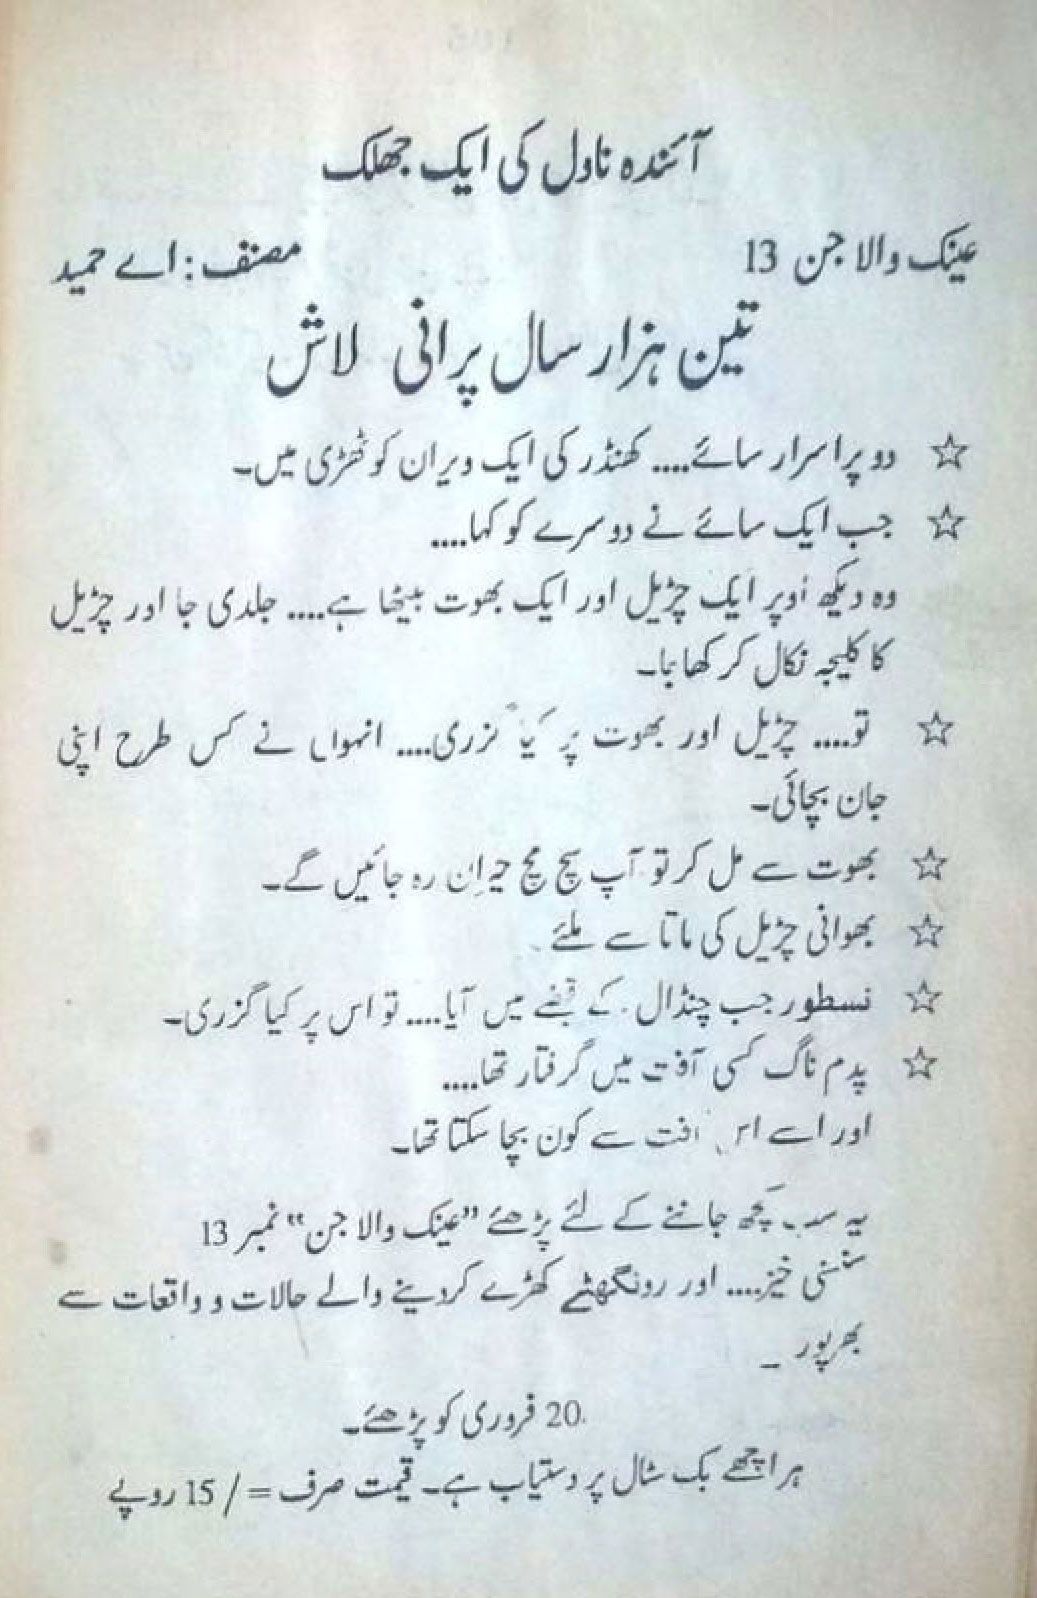 آئندہ ناول کی ایک جھلک
عینک والا جن 13 مصنف : اے حمید
تین ہزار سال پرانی لاش
☆ دو پراسرار سائے.... کھنڈر کی ایک ویران کوٹھڑی میں۔
☆ جب ایک سائے نے دوسرے کو کہا....
وہ دیکھ اُوپر ایک چڑیل اور ایک بھوت بیٹھا ہے.... جلدی جا اور چڑیل
کا کلیجہ نکال کر کھا جا۔
☆ تو.... چڑیل اور بھوت پر کیا گزری.... انہوں نے کس طرح اپنی
جان بچائی۔
☆ بھوت سے مل کر تو آپ سچ مچ حیران رہ جائیں گے۔
☆ بھوانی چڑیل کی ماتا سے ملئے
☆ نسطور جب چنڈال کے قبضے میں آیا.... تو اس پر کیا گزری۔
☆ پدم ناگ کسی آفت میں گرفتار تھا....
اور اسے اس آفت سے کون بچا سکتا تھا۔
یہ سب کچھ جاننے کے لئے پڑھئے "عینک والا جن" نمبر 13
سنسنی خیز.... اور رونگھٹے کھڑے کردینے والے حالات و واقعات سے
بھرپور ۔
20 فروری کو پڑھئے۔
ہر اچھے بک سٹال پر دستیاب ہے۔ قیمت صرف =/15 روپے